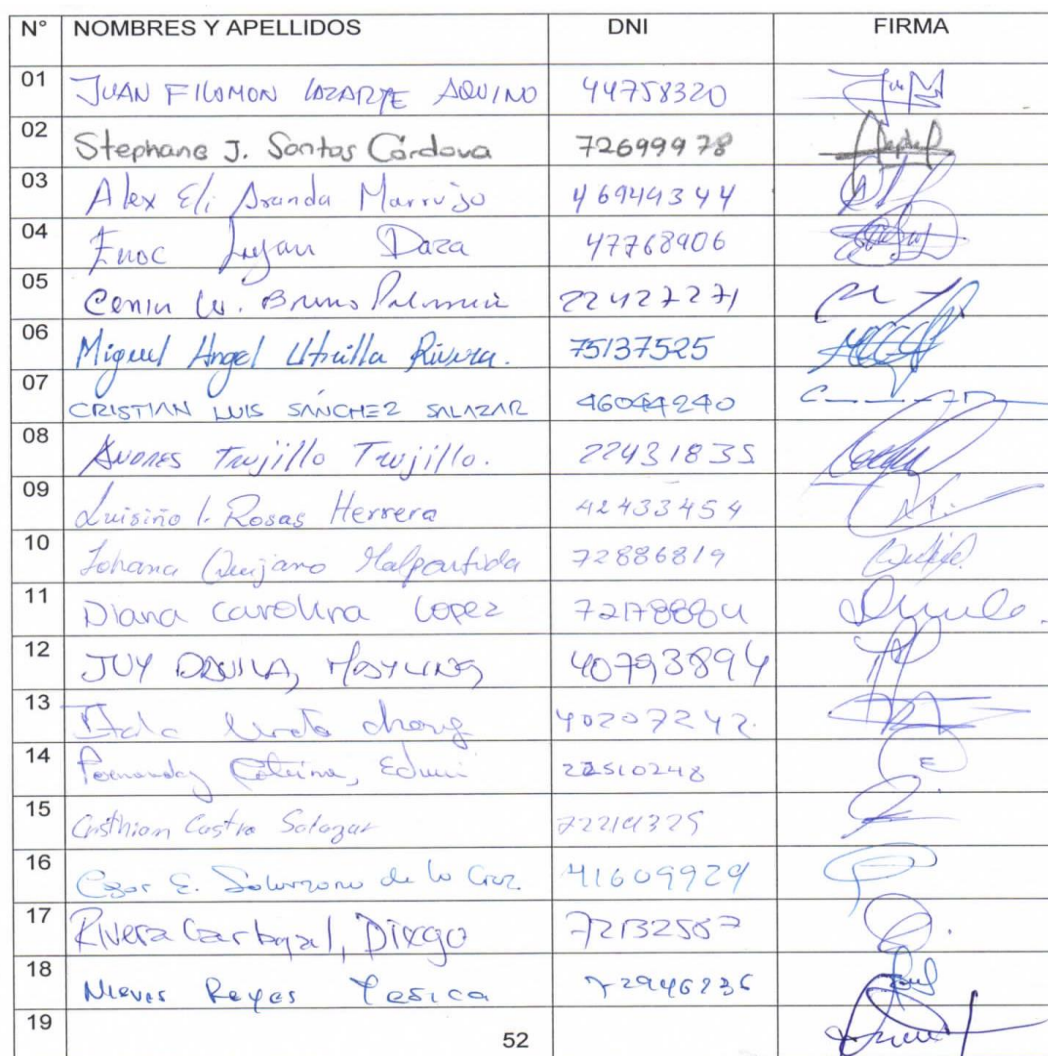 N° NOMBRES Y APELLIDOS DNI FIRMA
01 JUAN FILOMON LAZARTE AQUINO 44758320
02 Stephane J. Santos Córdova 72699978
03 Alex Eli Aranda Marrujo 46949344
04 Enoc Lujan Daza 47768906
05 W. Bruno 22427271
06 Miguel Angel Utrilla Rivera. 75137525
07 CRISTIAN LUIS SÁNCHEZ SALAZAR 46044240
08 ANDRES Trujillo Trujillo. 22431835
09 Luisiño I. Rosas Herrera 42433454
10 Johana Quijano Malpartida 72886819
11 Diana Carolina Lopez
12 JUY DAVILA, MAYLING 40793894
13 40207242.
14 22510248
15 Cristhian Castro Salazar
16 E. Solorzano de la Cruz 41609929
17 Rivera Carbajal, Diego
18 Nieves Reyes Yesica 72946236
19
52